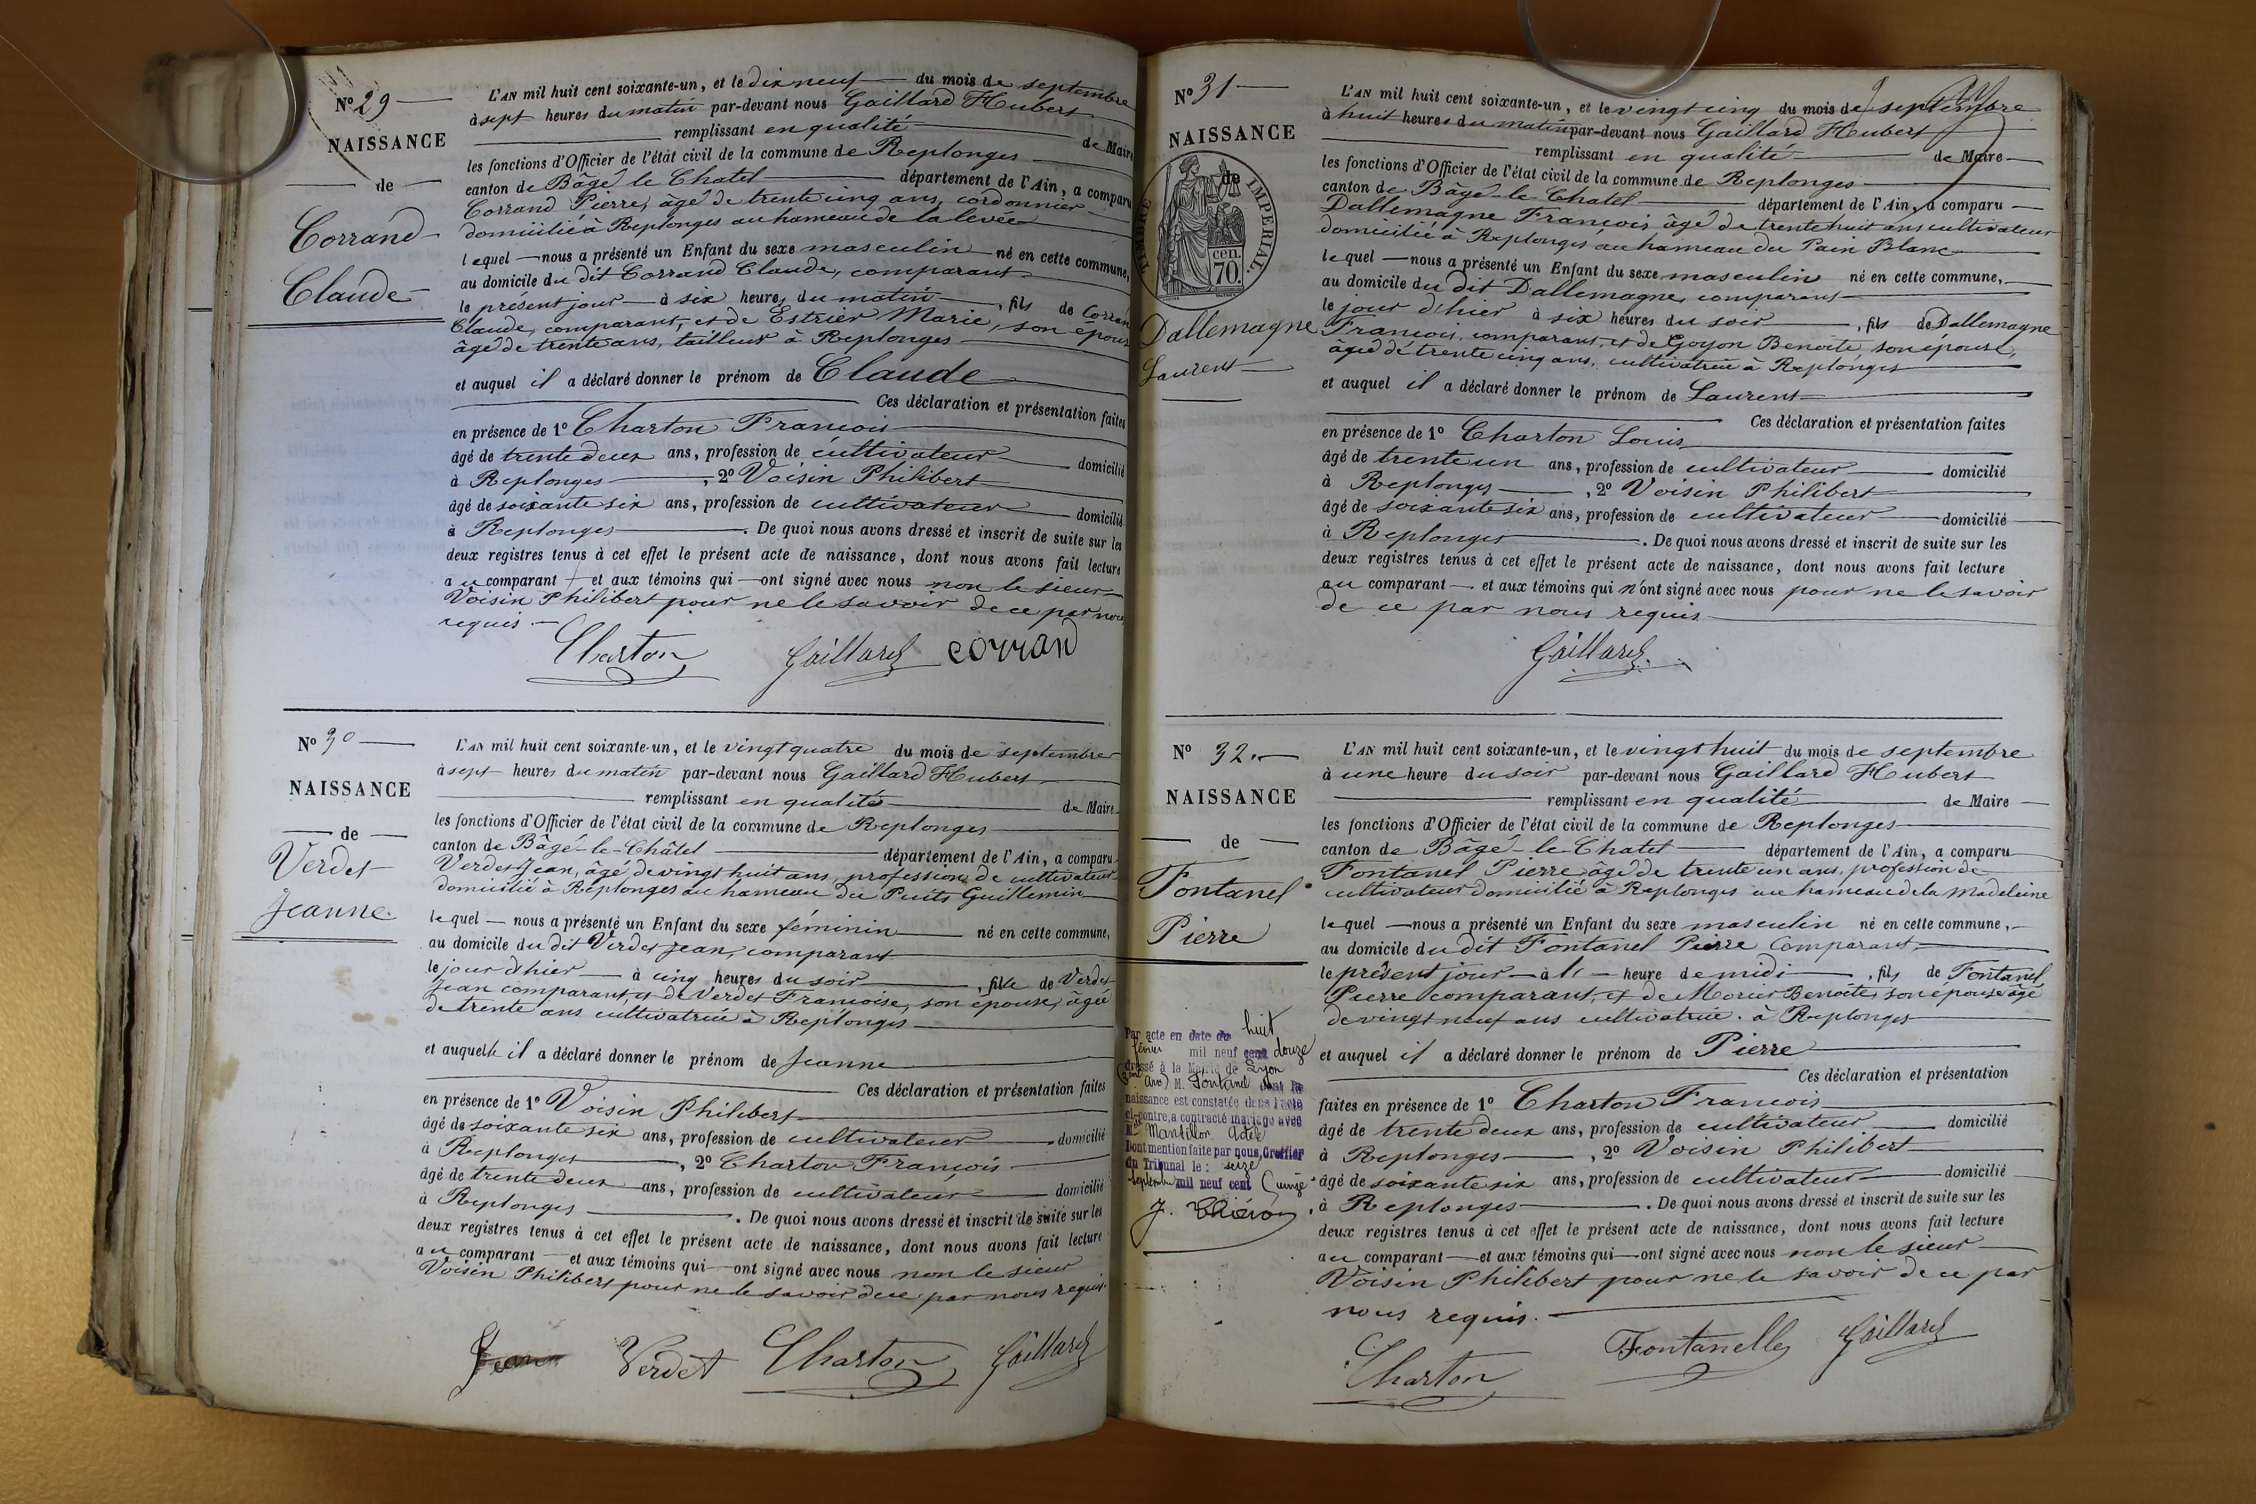 Nº 29
NAISSANCE
de
Corrand
Claude
L'AN mil huit cent soixante-un, et le dix neuf du mois de septembre
à sept heures du matin par-devant nous Gaillard Hubert
remplissant en qualité de Maire
les fonctions d'Officier de l'état civil de la commune de Replonges
canton de Bâgé le Chatel département de l'Ain, a comparu
Corrand Pierre, âgé de trente cinq ans, cordonnier
domicilié à Replonges au hameau de la levée
lequel nous a présenté un Enfant du sexe masculin né en cette commune,
au domicile du dit Corrand Claude, comparant
le présent jour à six heures du matin, fils de Corrand
Claude, comparant, et de Estrier Marie, son épouse
âgé de trente ans, tailleur à Replonges
et auquel il a déclaré donner le prénom de Claude
Ces déclaration et présentation faites
en présence de 1º Charton Francois
âgé de trente deux ans, profession de cultivateur domicilié
à Replonges, 2º Voisin Philibert
âgé de soixante six ans, profession de cultivateur domicilié
à Replonges. De quoi nous avons dressé et inscrit de suite sur les
deux registres tenus à cet effet le présent acte de naissance, dont nous avons fait lecture
au comparant et aux témoins qui ont signé avec nous non le sieur
Voisin Philibert pour ne le savoir de ce par nous
requis.
Charton Gaillard corrand
Nº 30
NAISSANCE
de
Verdet
Jeanne
L'AN mil huit cent soixante-un, et le vingt quatre du mois de septembre
à sept heures du matin par-devant nous Gaillard Hubert
remplissant en qualité de Maire
les fonctions d'Officier de l'état civil de la commune de Replonges
canton de Bâgé-le-Châtel département de l'Ain, a comparu
Verdet Jean, âgé de vingt huit ans, profession de cultivateur
domicilié à Replonges au hameau du Puits Guillemin
lequel nous a présenté un Enfant du sexe féminin né en cette commune,
au domicile du dit Verdet Jean, comparant
le jour d'hier à cinq heures du soir, fille de Verdet
Jean comparant, et de Verdet Francoise, son épouse, âgée
de trente ans cultivatrice à Replonges
et auquelle il a déclaré donner le prénom de Jeanne
Ces déclaration et présentation faites
en présence de 1º Voisin Philibert
âgé de soixante six ans, profession de cultivateur domicilié
à Replonges, 2º Charton François
âgé de trente deux ans, profession de cultivateur domicilié
à Replonges. De quoi nous avons dressé et inscrit de suite sur les
deux registres tenus à cet effet le présent acte de naissance, dont nous avons fait lecture
au comparant et aux témoins qui ont signé avec nous non le sieur
Voisin Philibert pour ne le savoir de ce par nous requis
Jean Verdet Charton Gaillard
Nº 31
NAISSANCE
de
TIMBRE IMPERIAL
70 cen.
Dallemagne
Laurent
L'AN mil huit cent soixante-un, et le vingt cinq du mois de septembre
à huit heures du matin par-devant nous Gaillard Hubert
remplissant en qualité de Maire
les fonctions d'Officier de l'état civil de la commune de Replonges
canton de Bâgé-le-Châtel département de l'Ain, a comparu
Dallemagne Francois âgé de trente huit ans cultivateur
domicilié à Replonges au hameau du Pain Blanc
lequel nous a présenté un Enfant du sexe masculin né en cette commune,
au domicile du dit Dallemagne, comparant
le jour d'hier à six heures du soir, fils de Dallemagne
Francois, comparant, et de Goyon Benoite, son épouse,
âgée de trente cinq ans, cultivatrice à Replonges
et auquel il a déclaré donner le prénom de Laurent
Ces déclaration et présentation faites
en présence de 1º Charton Louis
âgé de trente un ans, profession de cultivateur domicilié
à Replonges, 2º Voisin Philibert
âgé de soixante six ans, profession de cultivateur domicilié
à Replonges. De quoi nous avons dressé et inscrit de suite sur les
deux registres tenus à cet effet le présent acte de naissance, dont nous avons fait lecture
au comparant et aux témoins qui n'ont signé avec nous pour ne le savoir
de ce par nous requis
Gaillard
Nº 32.
NAISSANCE
de
Fontanel
Pierre
L'AN mil huit cent soixante-un, et le vingt huit du mois de septembre
à une heure du soir par-devant nous Gaillard Hubert
remplissant en qualité de Maire
les fonctions d'Officier de l'état civil de la commune de Replonges
canton de Bâgé-le-Chatel département de l'Ain, a comparu
Fontanel Pierre âgé de trente un ans, profession de
cultivateur domicilié à Replonges au hameau de la Madeleine
lequel nous a présenté un Enfant du sexe masculin né en cette commune,
au domicile du dit Fontanel Pierre comparant,
le présent jour à l' heure de midi, fils de Fontanel
Pierre comparant, et de Morier Benoîte, son épouse âgé
de vingt neuf ans cultivatrice à Replonges
et auquel il a déclaré donner le prénom de Pierre
Ces déclaration et présentation
faites en présence de 1º Charton Francois
âgé de trente deux ans, profession de cultivateur domicilié
à Replonges, 2º Voisin Philibert
âgé de soixante six ans, profession de cultivateur domicilié
à Replonges. De quoi nous avons dressé et inscrit de suite sur les
deux registres tenus à cet effet le présent acte de naissance, dont nous avons fait lecture
au comparant et aux témoins qui ont signé avec nous non le sieur
Voisin Philibert pour ne le savoir de ce par
nous requis.
Charton Fontanelle Gaillard
Par acte en date du huit
février mil neuf cent douze
dressé à la Mairie de Lyon
M. Fontanel dont la
naissance est constatée dans l'acte
ci-contre, a contracté mariage avec
Mantillor Adèle
Dont mention faite par nous, Greffier
du Tribunal le : seize
septembre mil neuf cent Quinze